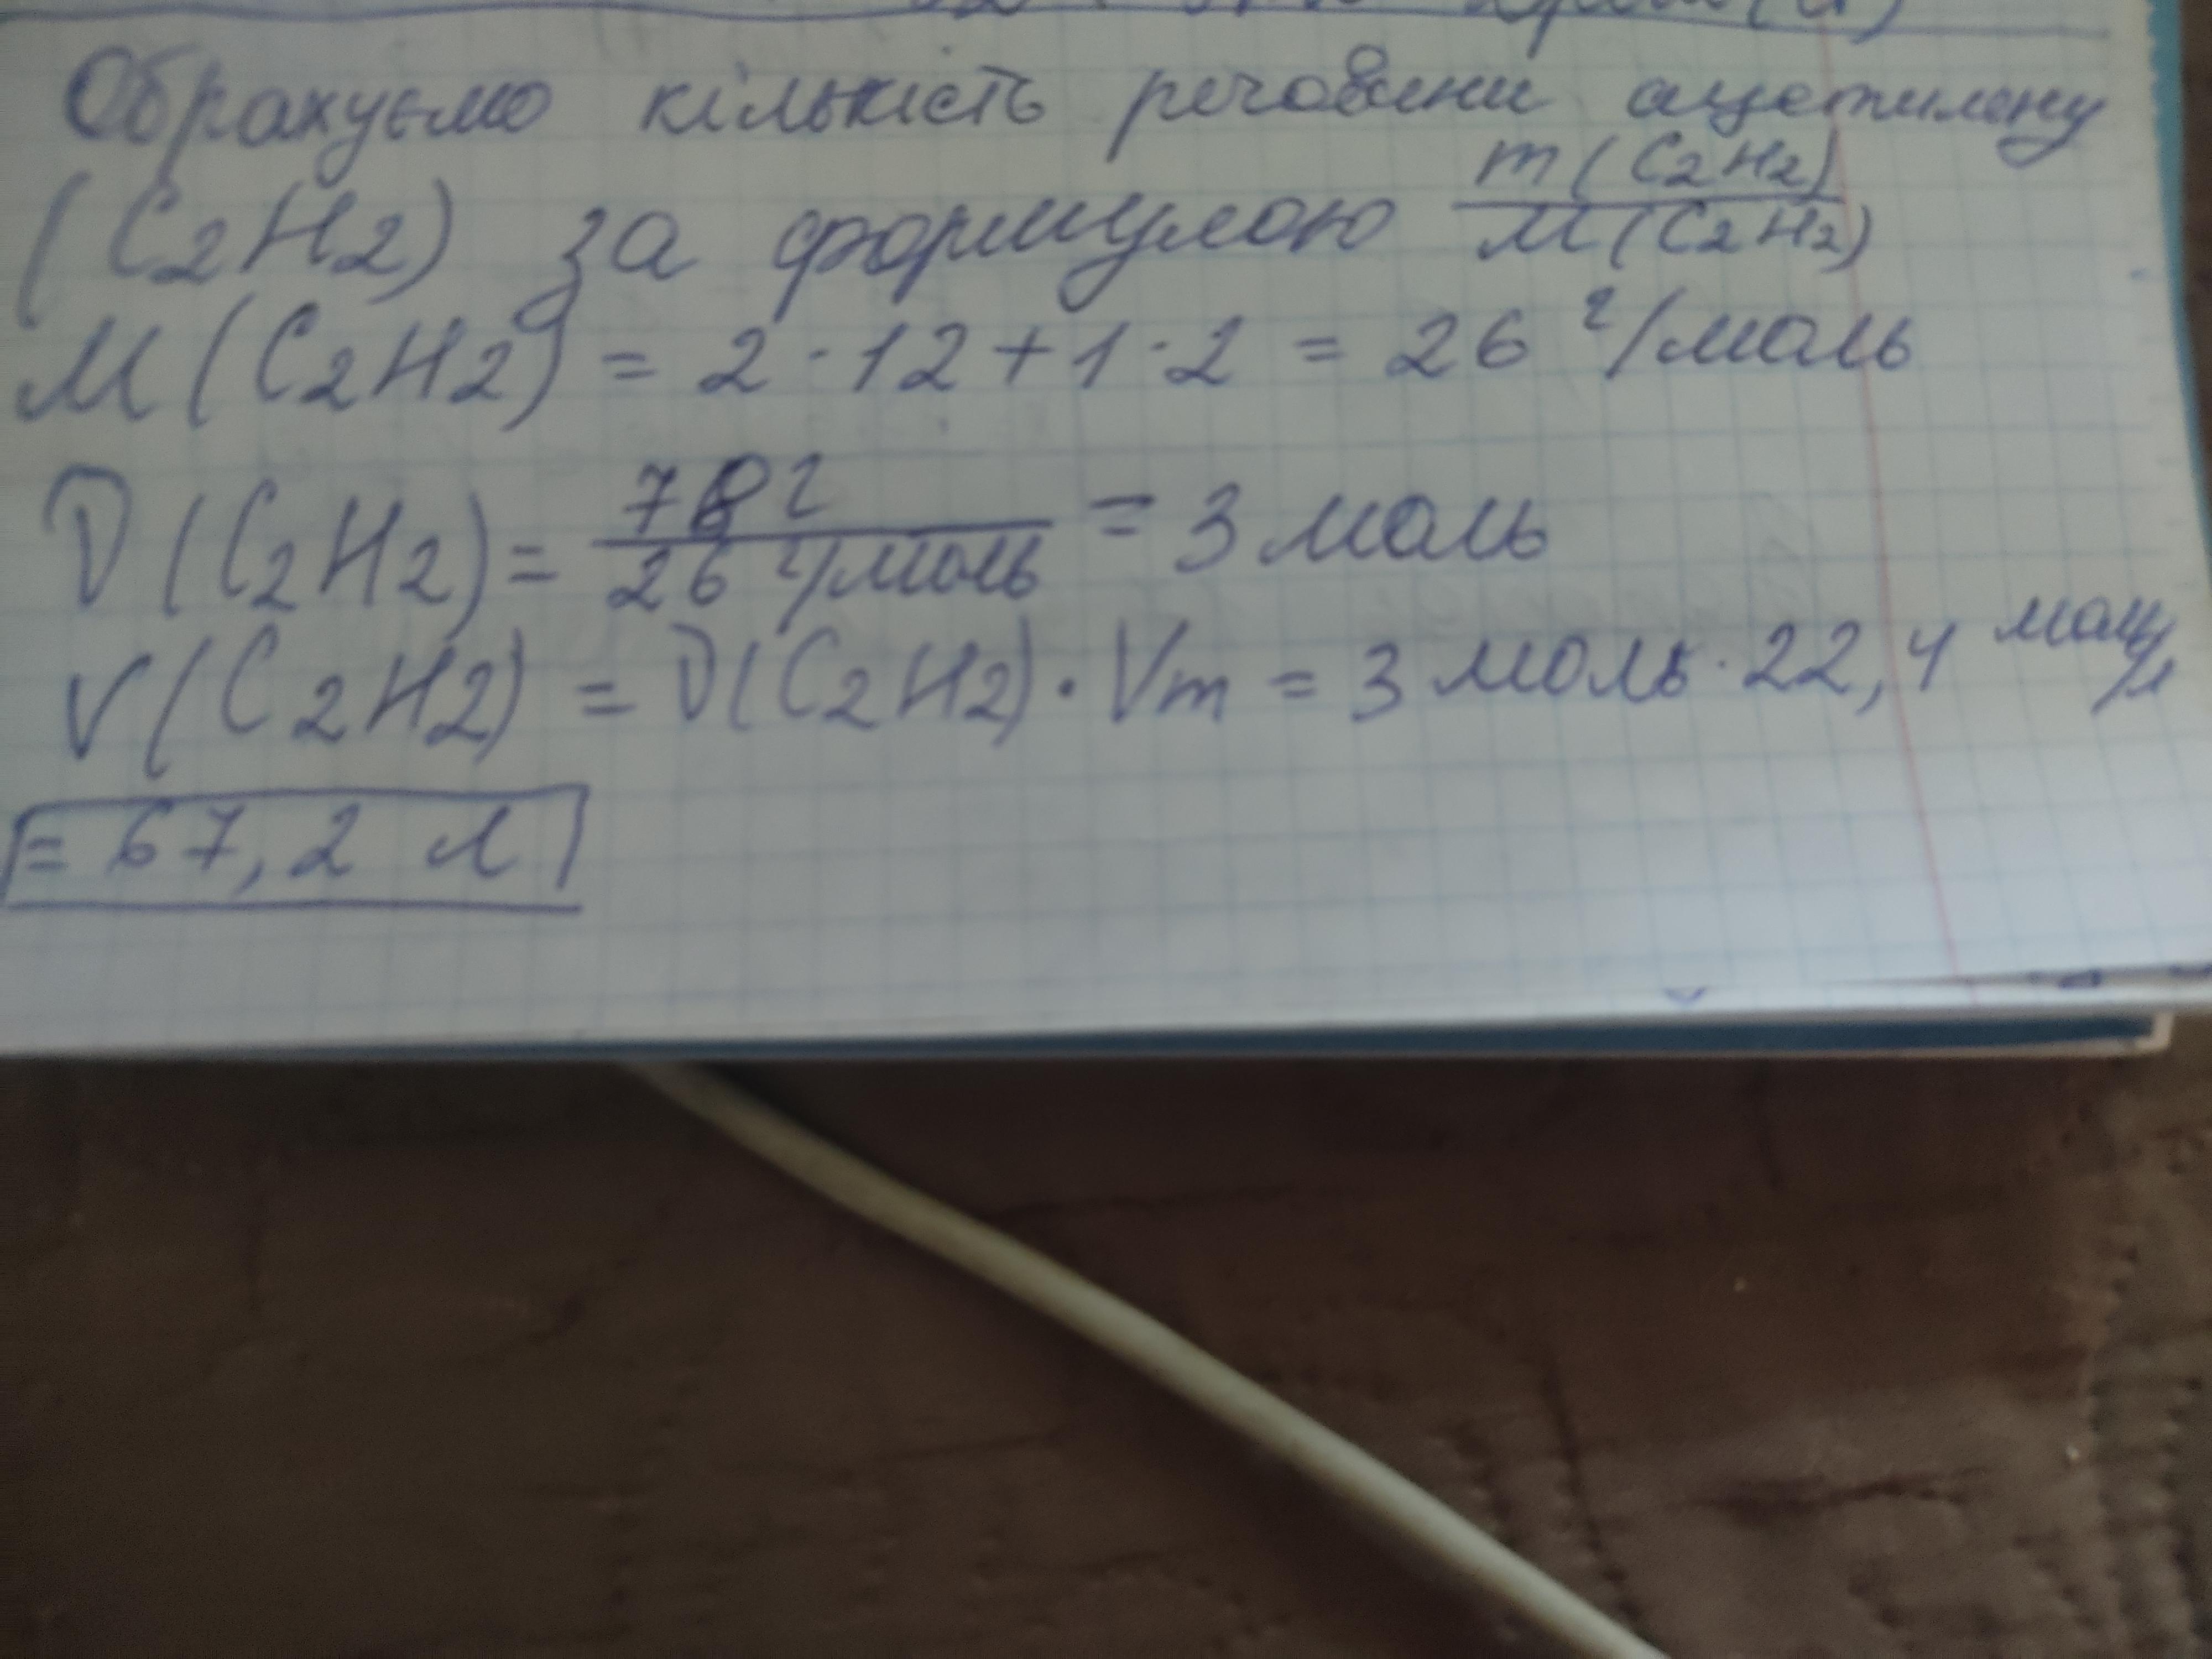 Обрахуємо кількість речовини ацетилену
(C2H2) за формулою m(C2H2)/M(C2H2)
M(C2H2) = 2·12+1·2 = 26 г/моль
ν(C2H2) = 78г/26 г/моль = 3 моль
V(C2H2) = ν(C2H2)·Vm = 3 моль·22,4 моль/л
= 67,2 л